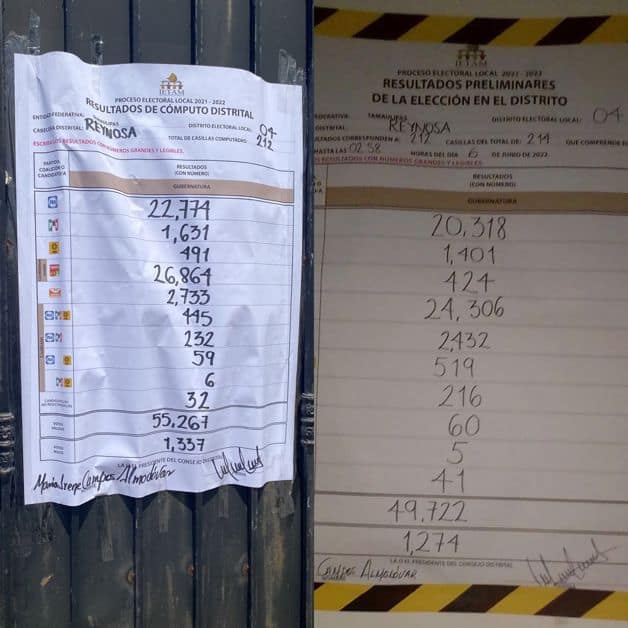 IETAM
PROCESO ELECTORAL LOCAL 2021 - 2022
RESULTADOS DE CÓMPUTO DISTRITAL
ENTIDAD FEDERATIVA: TAMAULIPAS
DISTRITO ELECTORAL LOCAL: 04
CABECERA DISTRITAL: REYNOSA
TOTAL DE CASILLAS COMPUTADAS: 212
RESULTADOS CON NÚMEROS GRANDES Y LEGIBLES.
PARTIDO, COALICIÓN O CANDIDATO/A
RESULTADOS
(CON NÚMERO)
GUBERNATURA
22,774
1,631
491
26,864
2,733
445
232
59
6
32
VOTOS VÁLIDOS 55,267
VOTOS NULOS 1,337
LA O EL PRESIDENTE DEL CONSEJO DISTRITAL
María Irene Campos Almodóvar
IETAM
PROCESO ELECTORAL LOCAL 2021 - 2022
RESULTADOS PRELIMINARES
DE LA ELECCIÓN EN EL DISTRITO
FEDERATIVA: TAMAULIPAS
DISTRITO ELECTORAL LOCAL: 04
DISTRITAL: REYNOSA
RESULTADOS CORRESPONDEN A: 212 CASILLAS DEL TOTAL DE: 214 QUE COMPRENDE
HASTA LAS 02:58 HORAS DEL DÍA 6 DE JUNIO DE 2022.
RESULTADOS CON NÚMEROS GRANDES Y LEGIBLES.
RESULTADOS
(CON NÚMERO)
GUBERNATURA
20,318
1,401
424
24,306
2,432
519
216
60
5
41
49,722
1,274
LA O EL PRESIDENTE DEL CONSEJO DISTRITAL
CAMPOS ALMODÓVAR